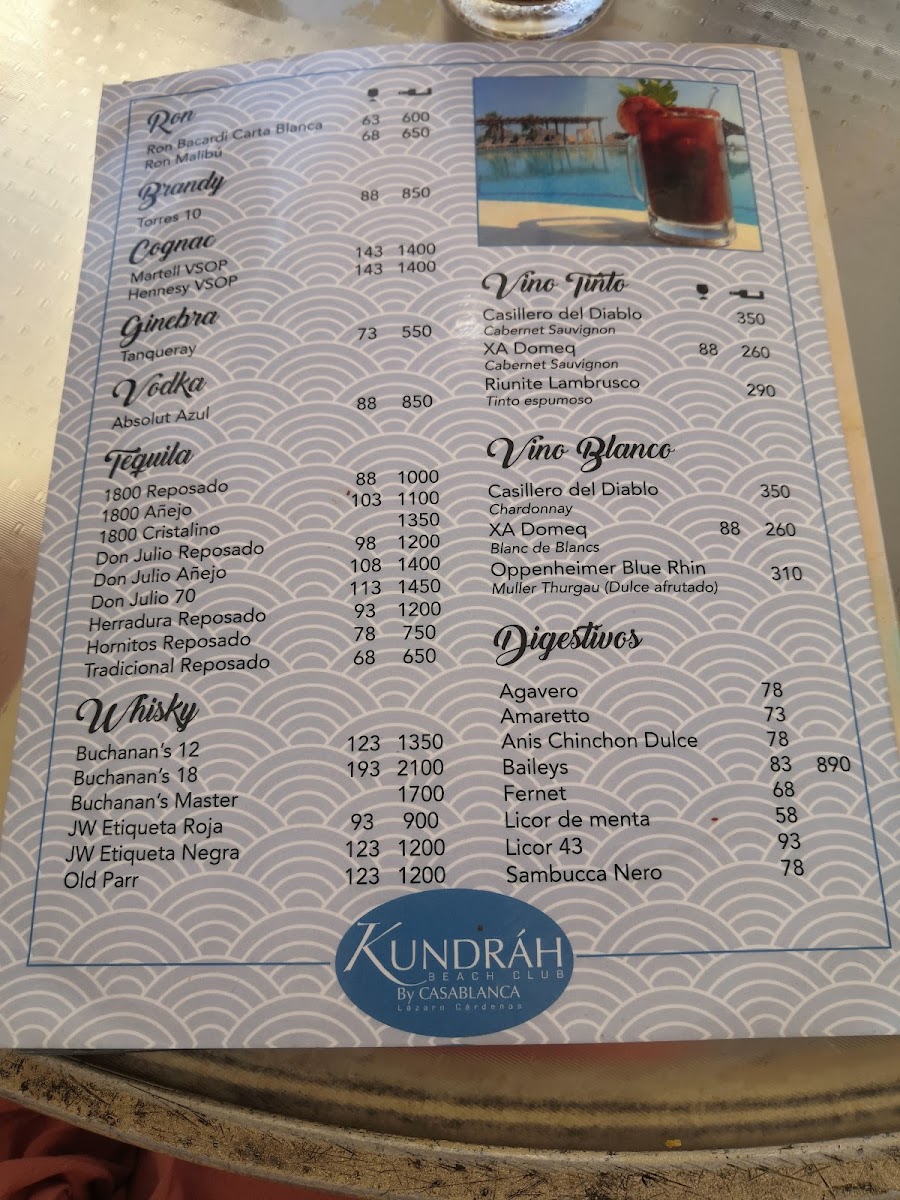 Ron
Ron Bacardi Carta Blanca 63 600
Ron Malibú 68 650
Brandy
Torres 10 88 850
Cognac
Martell VSOP 143 1400
Hennesy VSOP 143 1400
Ginebra
Tanqueray 73 550
Vodka
Absolut Azul 88 850
Tequila
1800 Reposado 88 1000
1800 Añejo 103 1100
1800 Cristalino 1350
Don Julio Reposado 98 1200
Don Julio Añejo 108 1400
Don Julio 70 113 1450
Herradura Reposado 93 1200
Hornitos Reposado 78 750
Tradicional Reposado 68 650
Whisky
Buchanan's 12 123 1350
Buchanan's 18 193 2100
Buchanan's Master 1700
JW Etiqueta Roja 93 900
JW Etiqueta Negra 123 1200
Old Parr 123 1200
Vino Tinto
Casillero del Diablo 350
Cabernet Sauvignon
XA Domeq 88 260
Cabernet Sauvignon
Riunite Lambrusco 290
Tinto espumoso
Vino Blanco
Casillero del Diablo 350
Chardonnay
XA Domeq 88 260
Blanc de Blancs
Oppenheimer Blue Rhin 310
Muller Thurgau (Dulce afrutado)
Digestivos
Agavero 78
Amaretto 73
Anis Chinchon Dulce 78
Baileys 83 890
Fernet 68
Licor de menta 58
Licor 43 93
Sambucca Nero 78
KUNDRÁH
BEACH CLUB
By CASABLANCA
Lázaro Cárdenas